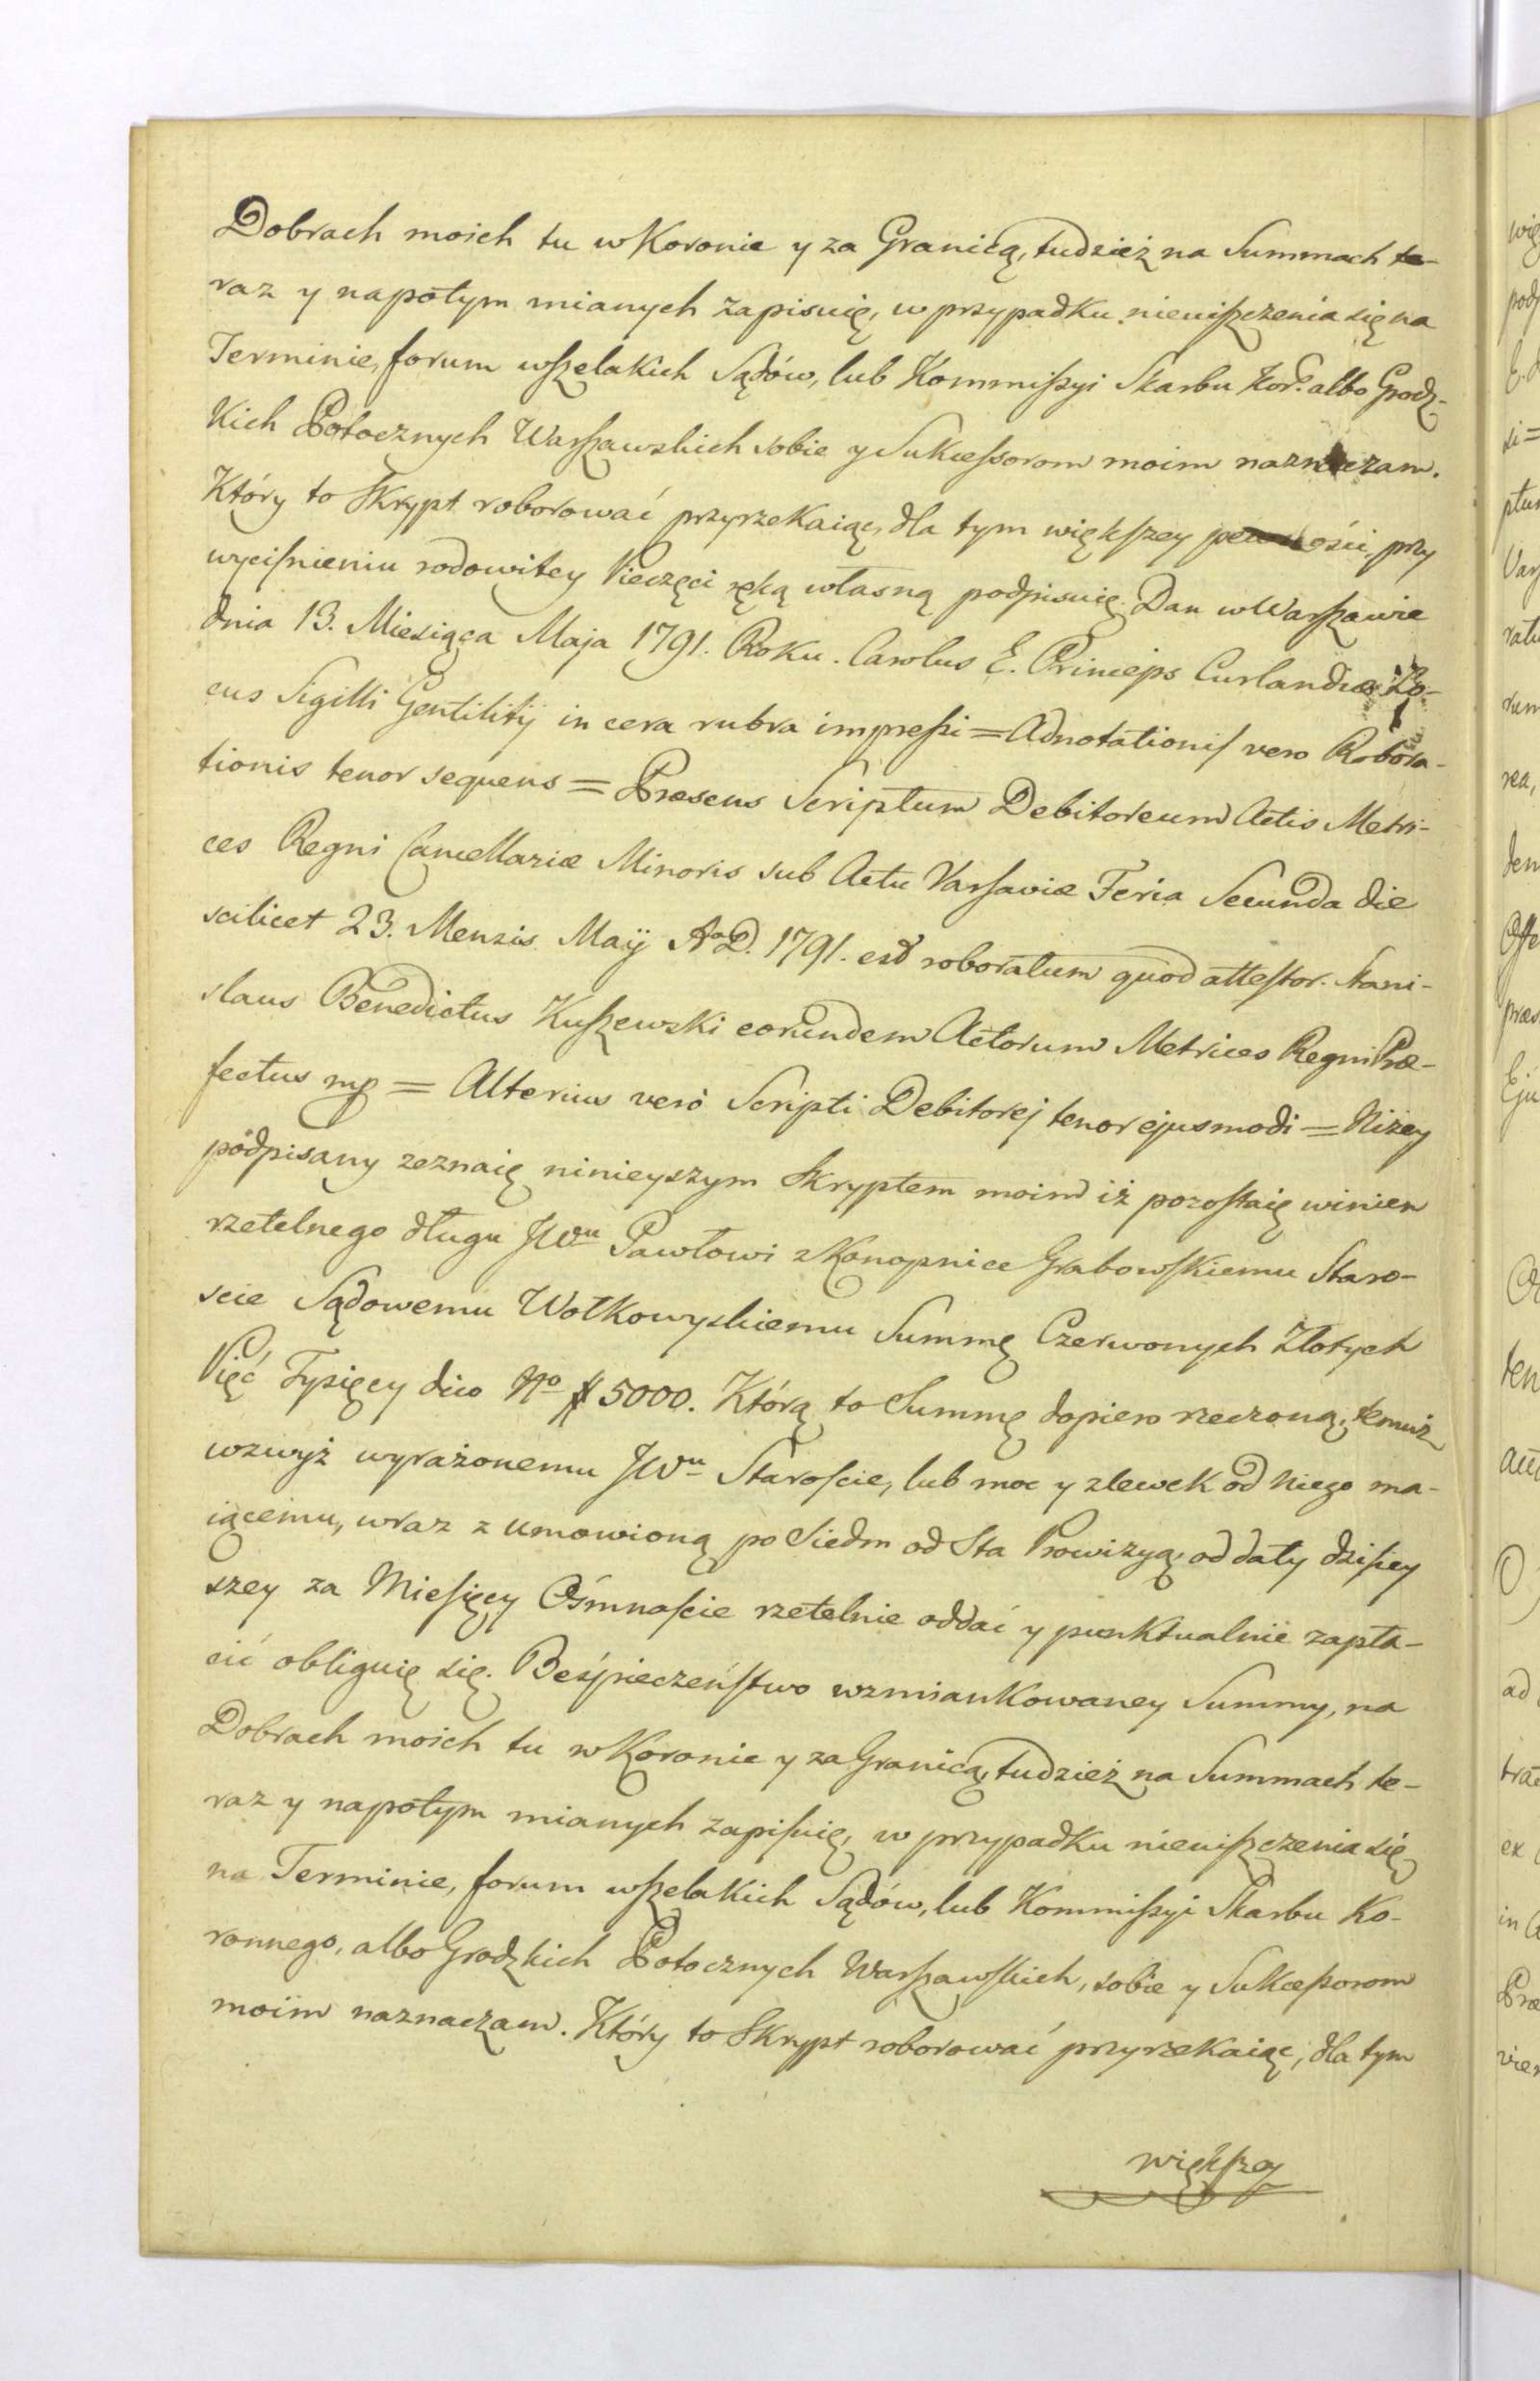 Dobrach moich tu w Koronie y za Granicą, tudzież na Summach te-
raz y napotym mianych zapisuię, w przypadku nieuiszczenia się na
Terminie, forum wszelakich Sądów, lub Kommissyi Skarbu Kor: albo Grodz-
kich Potocznych Warszawskich sobie y Sukcessorom moim naznaczam.
Który to Skrypt roborować przyrzekaiąc, dla tym większey pewności, przy
wyciśnieniu rodowitey Pieczęci ręką własną podpisuię. Dan w Warszawie
dnia 13. Miesiąca Maja 1791. Roku. Carolus E. Princeps Curlandiæ Lo-
cus Sigilli Gentilitij in cera rubra impressi = Adnotationis vero Robora-
tionis tenor sequens = Præsens Scriptum Debitoreum Actis Metri-
ces Regni Cancellariæ Minoris sub Actu Varsaviæ Feria Secunda die
scilicet 23. Mensis Maÿ A.D. 1791. est roboratum quod attestor. Stani-
slaus Benedictus Kuszewski eorundem Actorum Metrices Regni Præ-
fectus mp = Alterius verò Scripti Debitorej tenor ejusmodi = Niżey
podpisany zeznaię ninieyszym Skryptem moim iż pozostaię winien
rzetelnego długu JWu Pawłowi z Konopnice Grabowskiemu Staro-
scie Sądowemu Wołkowyskiemu Summę Czerwonych Złotych
Pięć Tysięcy dico No # 5000. Którą to Summę dopiero rzeczoną, temuż
wzwyż wyrażonemu JWu Staroście, lub moc y zlewek od Niego ma-
iącemu, wraz z umowioną po Siedm od Sta Prowizyą, od daty dzisiey
szey za Miesięcy Ośmnaście rzetelnie oddać y punktualnie zapła-
cić obliguię się. Beśpieczeństwo wzmiankowaney Summy, na
Dobrach moich tu w Koronie y za Granicą, tudzież na Summach te-
raz y napotym mianych zapisuię, w przypadku nieuiszczenia się
na Terminie, forum wszelakich Sądów, lub Kommissyi Skarbu Ko-
ronnego, albo Grodzkich Potocznych Warszawskich, sobie y Sukcessorom
moim naznaczam. Który to Skrypt roborować przyrzekaiąc, dla tym
większey